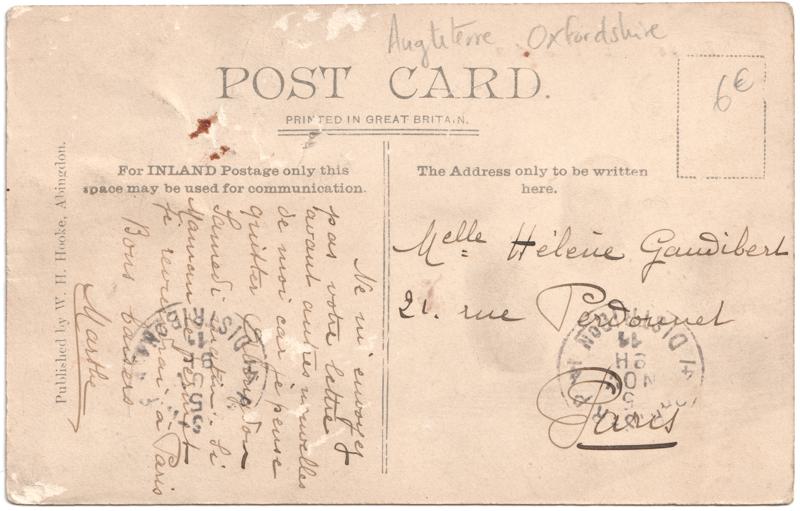 Angleterre Oxfordshire
6€
POST CARD.
PRINTED IN GREAT BRITAIN.
For INLAND Postage only this
space may be used for communication.
The Address only to be written
here.
Published by W. H. Hooke, Abingdon.
Ne m'envoyez
pas votre lettre
avant autres nouvelles
de moi car je pense
quitter Abingdon
Samedi matin. Si
Maman le permet
je reviendrai à Paris
Bons baisers
Marthe
Melle Hélène Gaudibert
21. rue Perdonnet
Paris